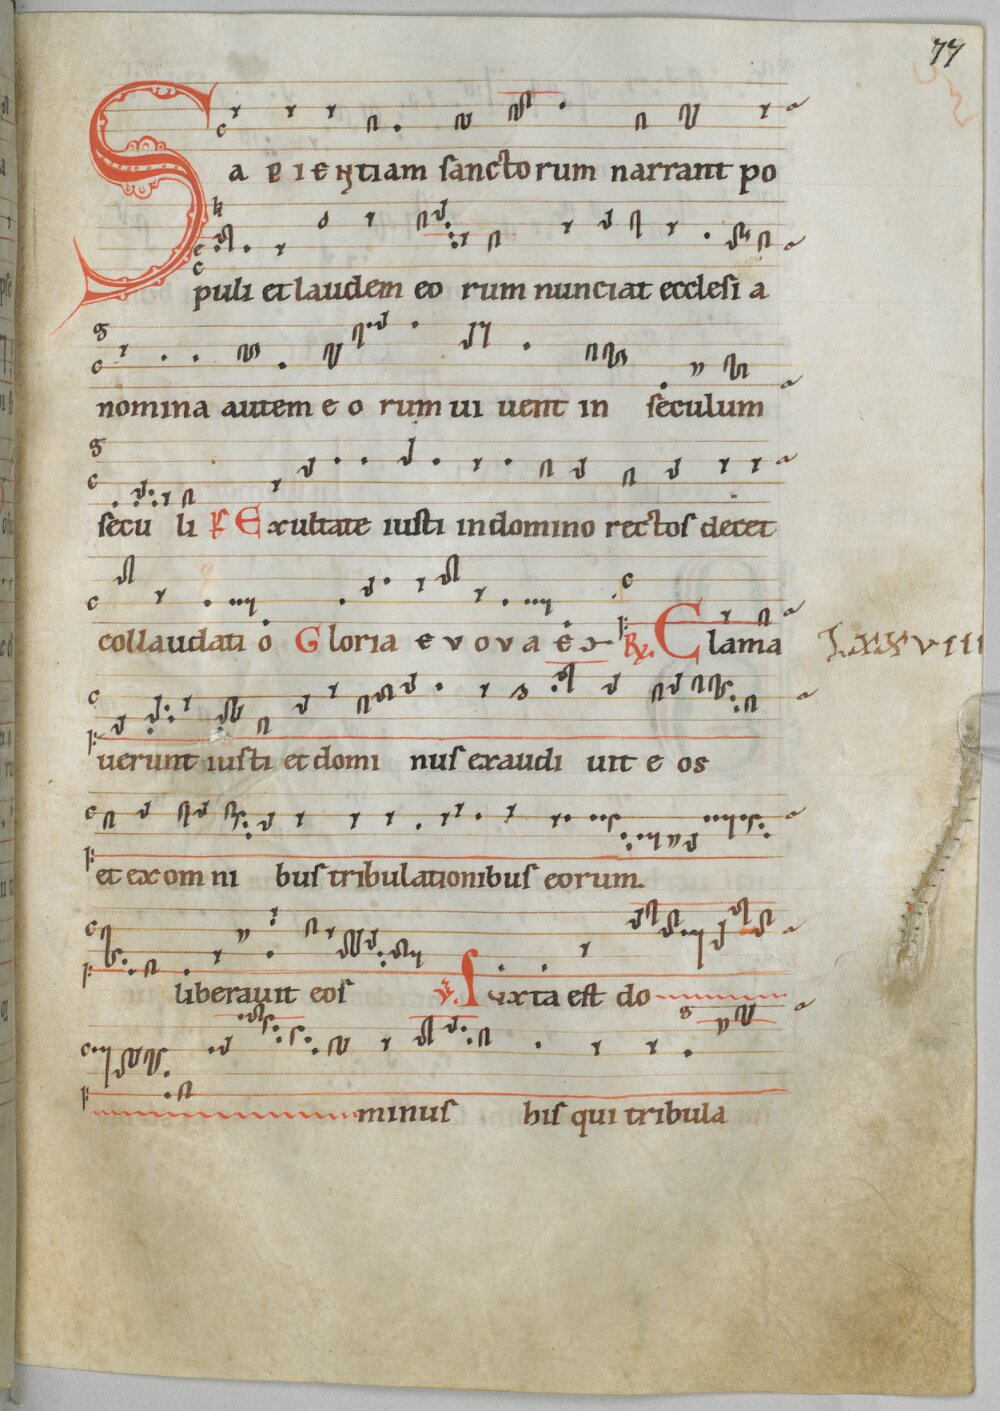 77
Sapientiam sanctorum narrant po
puli et laudem eo rum nunciat ecclesi a
nomina autem e o rum ui uent in seculum
secu li Ps Exultate iusti in domino rectos decet
collaudati o Gloria e v o v a e R. Clama
LXXVIII
uerunt iusti et domi nus exaudi uit e os
et ex om ni bus tribulationibus eorum.
liberauit eos V. Iuxta est do
minus his qui tribula